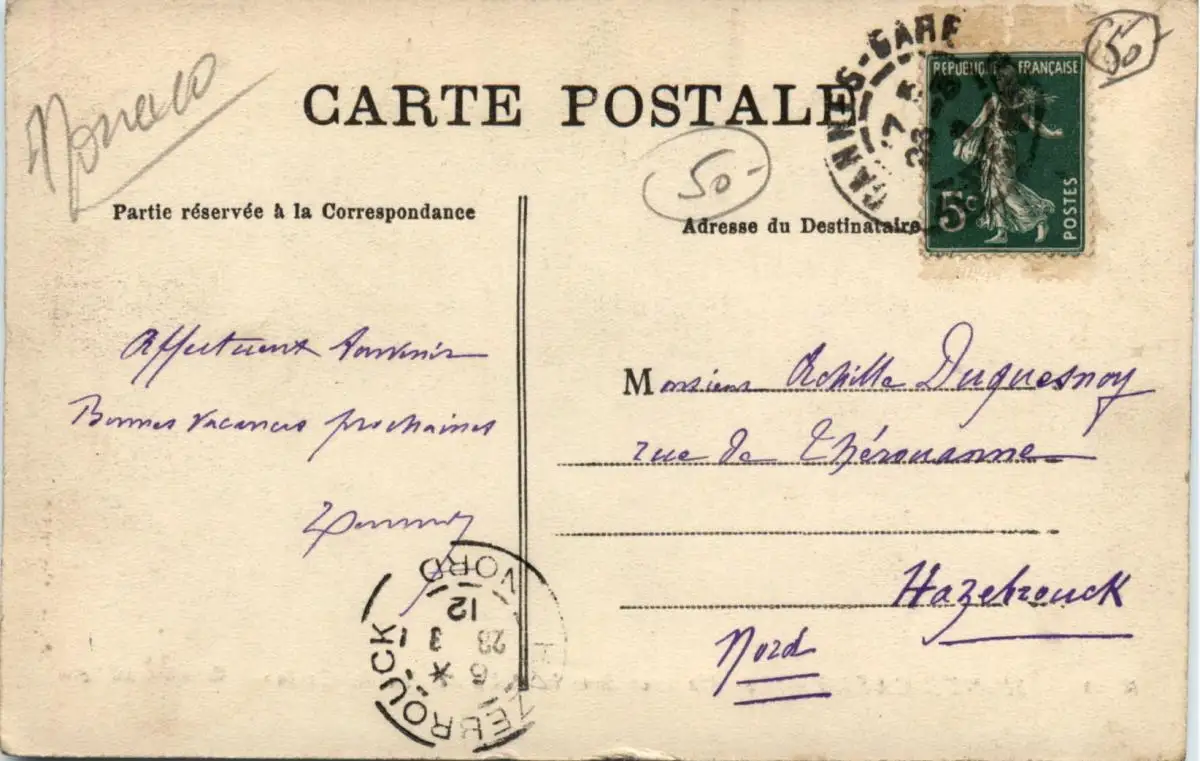 Monaco
CARTE POSTALE
CANNES-GARE
50
RÉPUBLIQUE FRANÇAISE
5c
POSTES
50-
Partie réservée à la Correspondance
Adresse du Destinataire
Affectueux Souvenir
Bonnes vacances prochaines
Monsieur Achille Duquesnoy
rue de Thérouanne
Hazebrouck
Nord
HAZEBROUCK
NORD
12